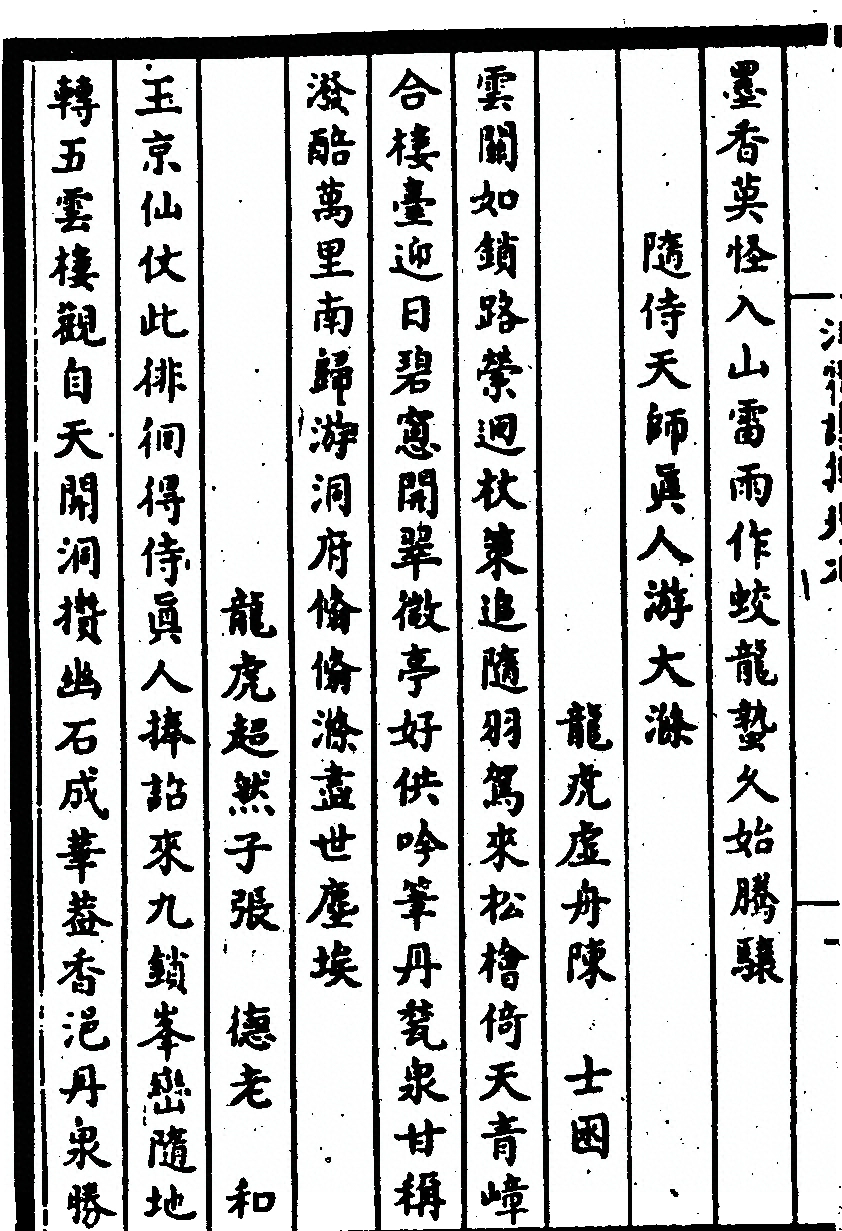 墨香莫怪入山雷雨作蛟龍蟄久始騰驤
隨侍天師眞人游大滌
龍虎虛舟陳　士囦
雲關如鎖路縈迴杖策追隨羽駕來松檜倚天青嶂
合樓臺迎日碧窻開翠微亭好供吟筆丹甃泉甘稱
潑醅萬里南歸游洞府翛翛滌盡世塵埃
龍虎超然子張　德老　和
玉京仙仗此徘徊得侍眞人捧詔來九鎖峯巒隨地
轉五雲樓觀自天開洞攢幽石成華葢香浥丹泉勝